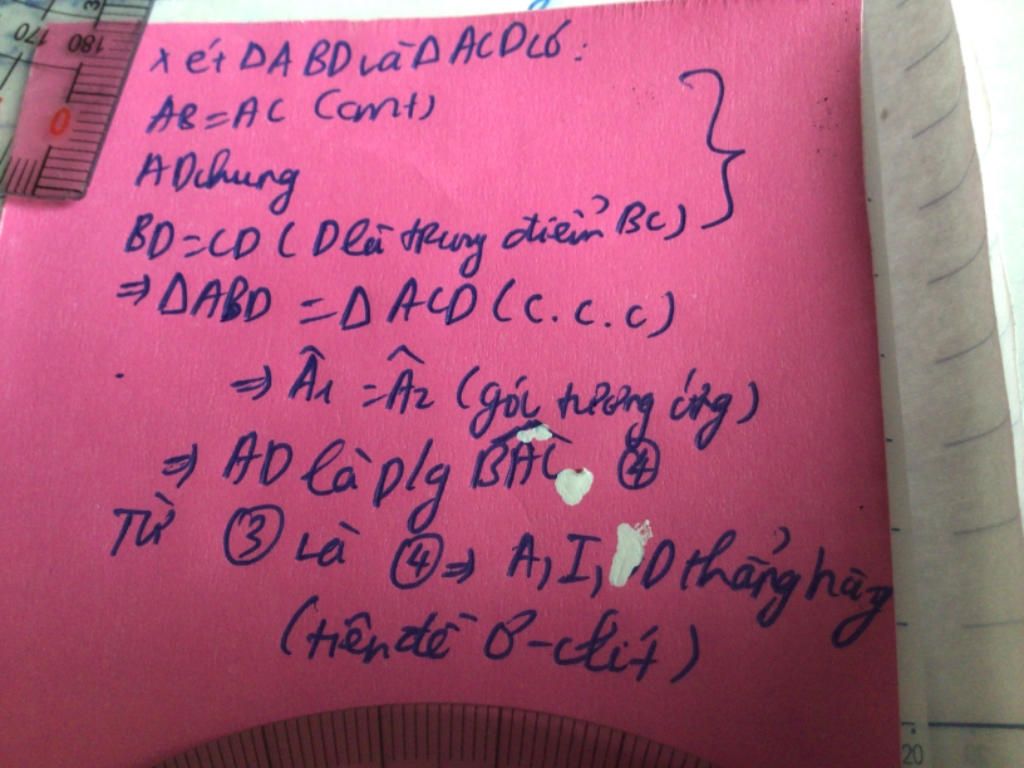 170 180
0
xét ΔABD và ΔACD có:
AB=AC (cmt)
AD chung
BD=CD (D là trung điểm BC)
⇒ ΔABD = ΔACD (c.c.c)
⇒ Â1 = Â2 (góc tương ứng)
⇒ AD là p/g BAC ④
Từ ③ và ④ ⇒ A, I, D thẳng hàng
(tiên đề Ơ-clít)
20